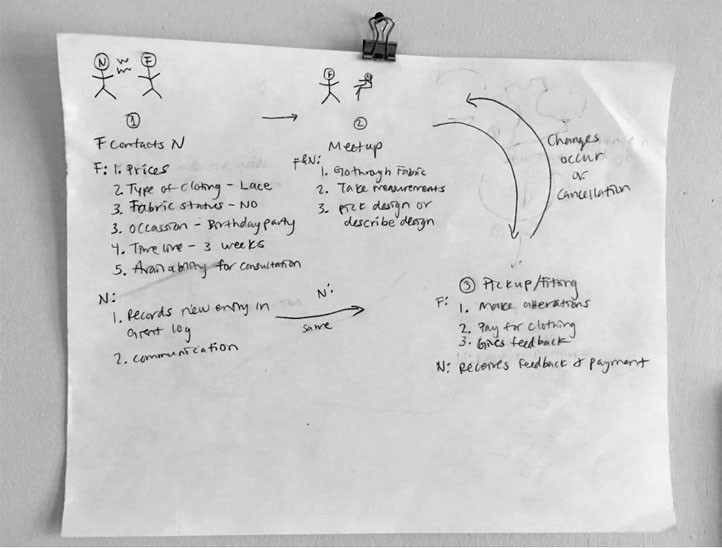 N F
①
F contacts N
F: 1. Prices
2. Type of cloting - Lace
3. Fabric status - NO
3. occassion - Birthday party
4. Timeline - 3 weeks
5. Availability for consultation
N:
1. Records new entry in
client log
2. communication
F
②
Meetup
F&N:
1. Go through Fabric
2. Take measurements
3. pick design or
describe design
N:
same
Changes
occur
or
cancellation
③ Pickup/fitting
F: 1. Make alterations
2. Pay for clothing
3. Gives feedback
N: Receives feedback & payment